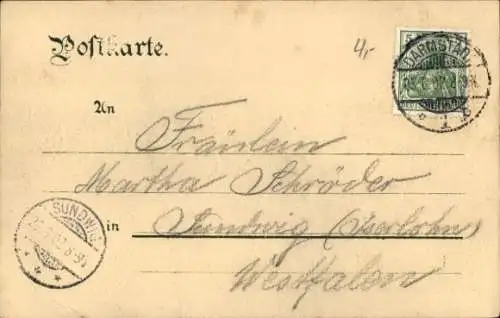 Postkarte.
4,-
5
DARMSTADT
An
Fräulein
Martha Schröder
in Sundwig (Iserlohn)
Westfalen
SUNDWIG